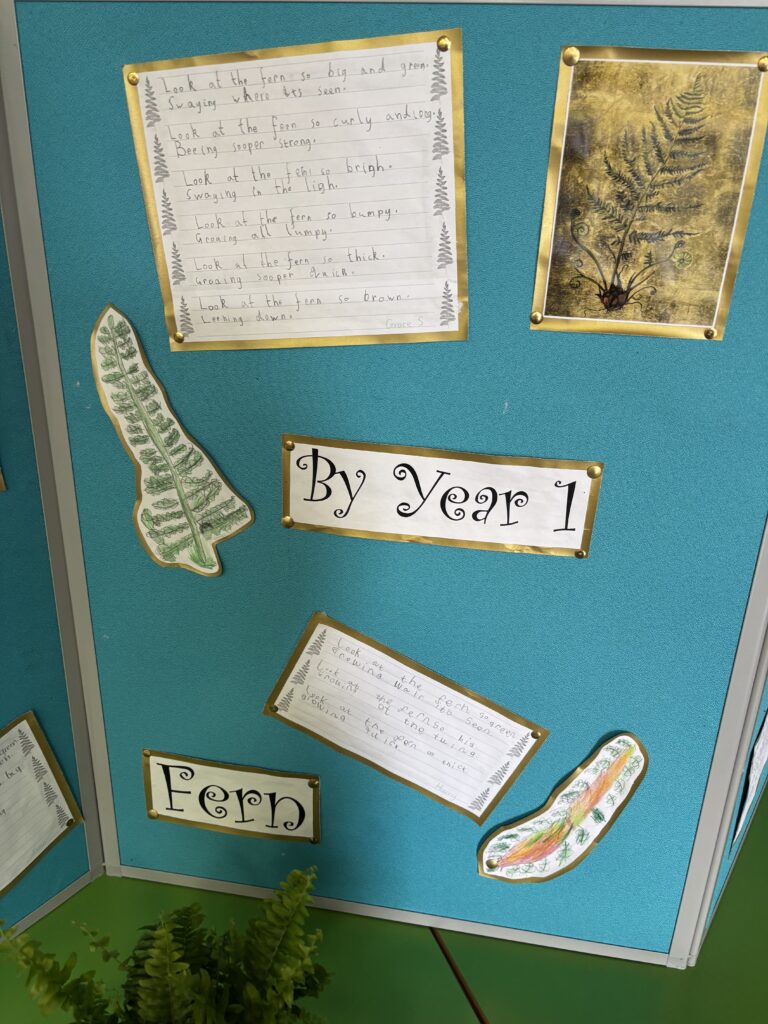 Look at the fern so big and green.
Swaying where its seen.
Look at the fern so curly and long.
Beeing sooper strong.
Look at the fern so brigh.
Swaying in the ligh.
Look at the fern so bumpy.
Growing all lumpy.
Look at the fern so thick.
Growing sooper quick.
Look at the fern so brown.
Leening down.
Grace S
By Year 1
Look at the fern so green
Growing wair its seen
Look at the fern so big
Growing at the twing
Look at the fern so thick
growing quick
Fern